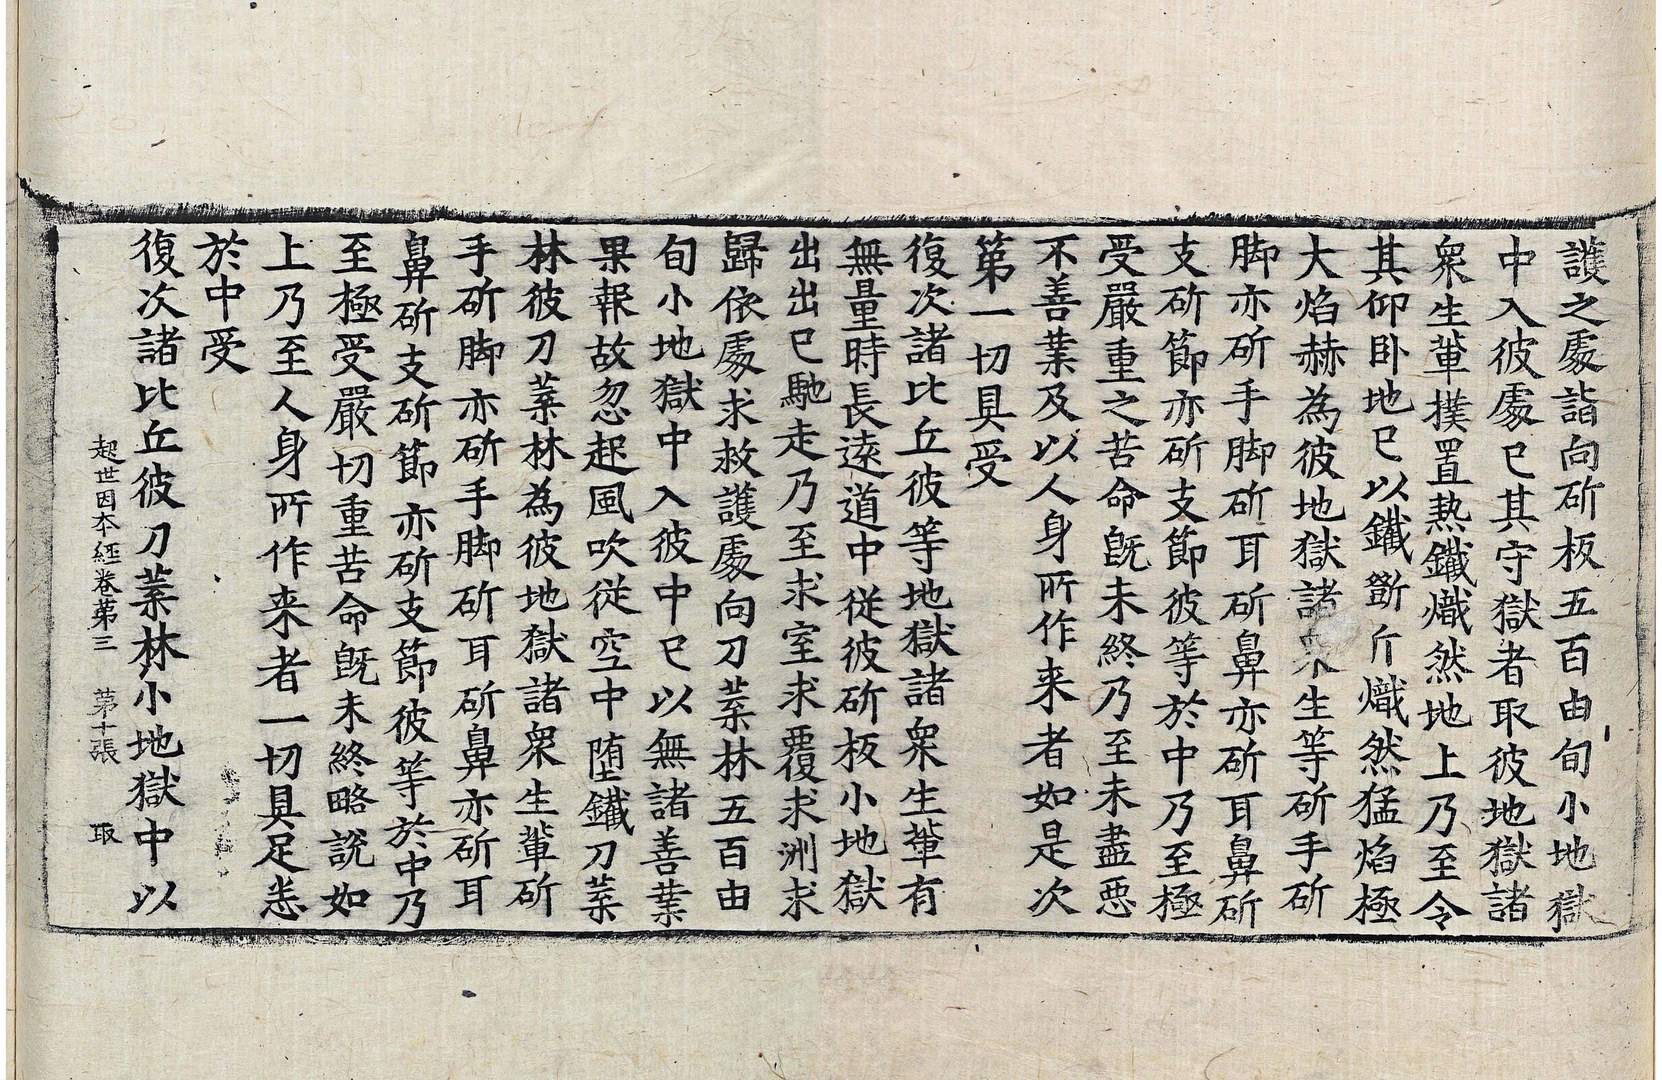 護之處詣向斫板五百由旬小地獄
中入彼處已其守獄者取彼地獄諸
衆生軰撲置熱鐵熾然地上乃至令
其仰卧地已以鐵斵斤熾然猛焰極
大焰赫為彼地獄諸衆生等斫手斫
脚亦斫手脚斫耳斫鼻亦斫耳鼻斫
支斫節亦斫支節彼等於中乃至極
受嚴重之苦命旣未終乃至未盡惡
不善業及以人身所作来者如是次
第一切具受
復次諸比丘彼等地獄諸衆生軰有
無量時長遠道中従彼斫板小地獄
出出已馳走乃至求室求覆求洲求
歸依處求救護處向刀葉林五百由
旬小地獄中入彼中已以無諸善業
果報故忽起風吹従空中堕鐵刀葉
林彼刀葉林為彼地獄諸衆生軰斫
手斫脚亦斫手脚斫耳斫鼻亦斫耳
鼻斫支斫節亦斫支節彼等於中乃
至極受嚴切重苦命旣未終略說如
上乃至人身所作来者一切具足悉
於中受
復次諸比丘彼刀葉林小地獄中以
起世因本經卷第三 第十張 取